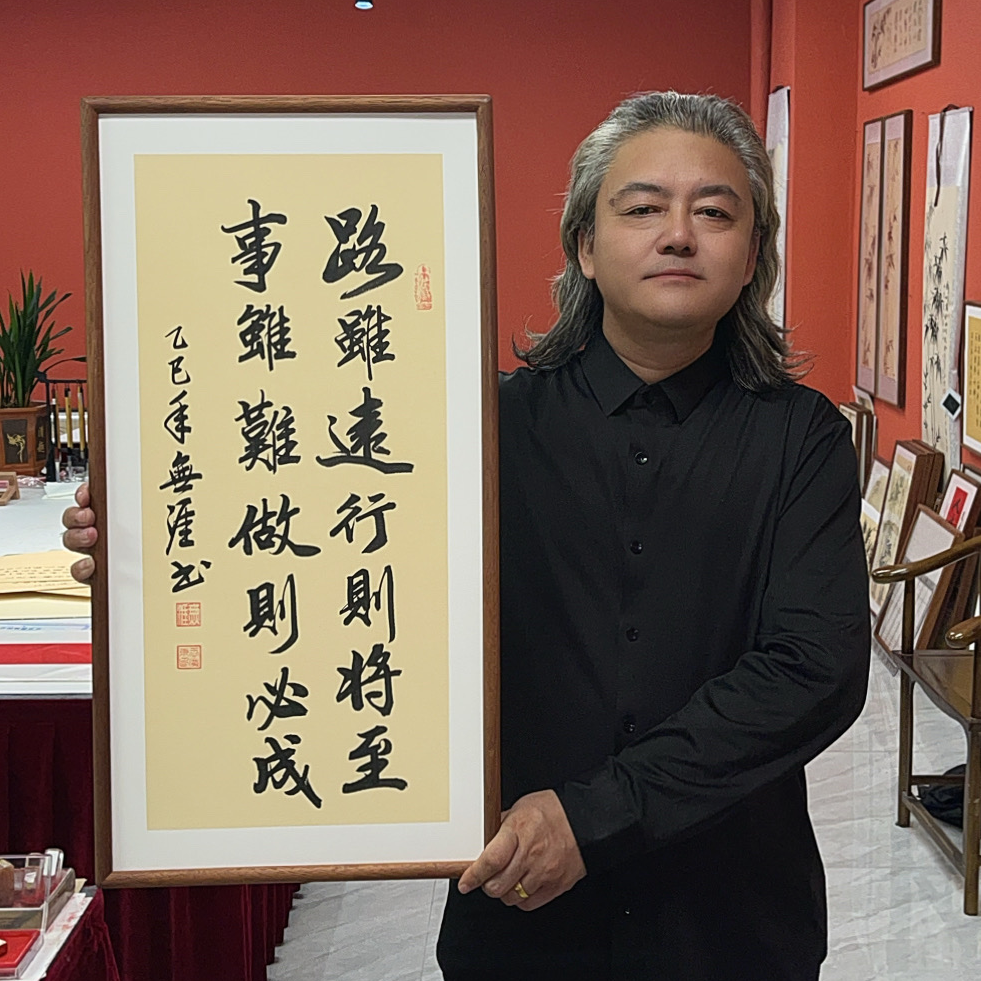 路雖遠行則將至
事雖難做則必成
乙巳年無涯书